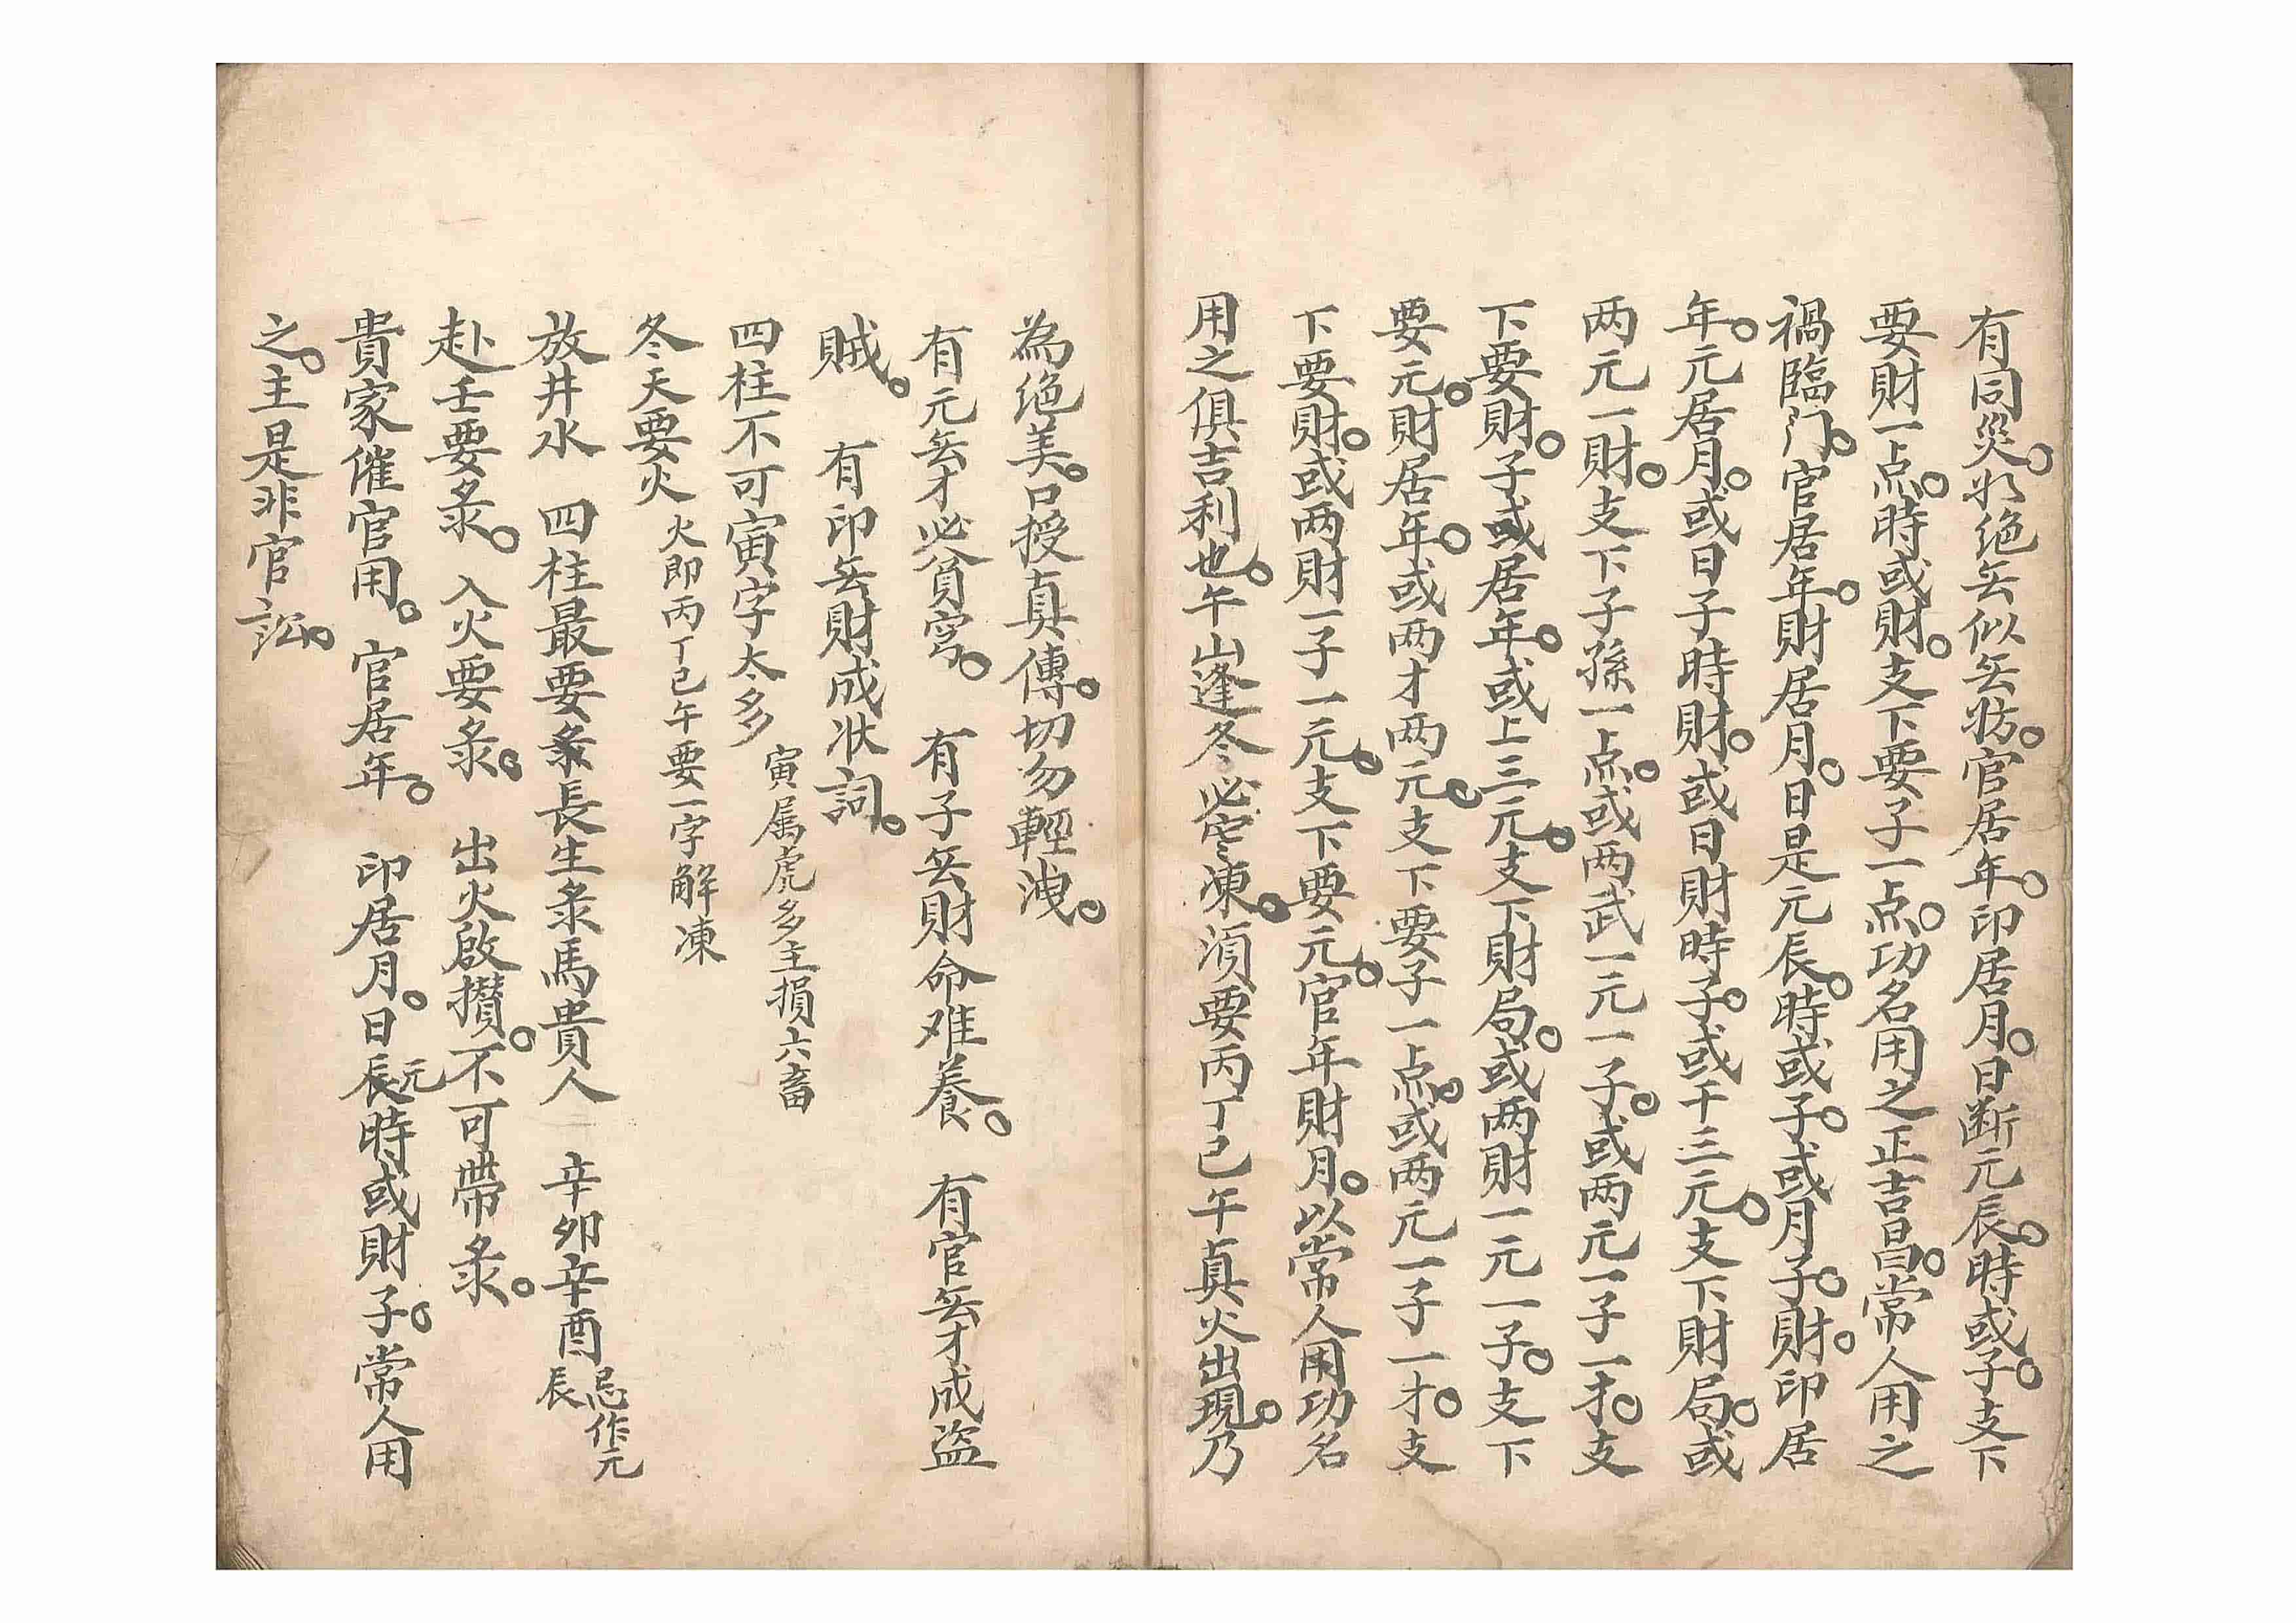 有同災。犯絶无似无妨。官居年。印居月。日断元辰。時或子。支下
要財一点。時或財。支下要子一点。功名用之正吉昌。常人用之
禍臨门。官居年。財居月。日是元辰。時或子。或月子。財。印居
年。元居月。或日子時財。或日財時子。或干三元。支下財局。或
两元一財。支下子孫一点。或两武一元一子。或两元一子一才。支
下要財。子或居年。或上三元。支下財局。或两財一元一子。支下
要元。財居年。或两才两元。支下要子一点。或两元一子一才。支
下要財。或两財一子一元。支下要元。官年財月。以常人用功名
用之俱吉利也。午山逢冬必寒凍。須要丙丁巳午真火出現。乃
為絶美。口授真傳。切勿輕洩。
有元无才必貧窮。 有子无財命难養。 有官无才成盜
賊。 有印无財成状詞。
四柱不可寅字太多 寅属虎多主損六畜
冬天要火 火即丙丁巳午要一字解凍
放井水 四柱最要彔長生彔馬貴人 辛卯辛酉忌作元辰
赴壬要彔。 入火要彔。 出火啟攢。不可帶彔。
貴家催官用。 官居年。 印居月。日元辰時或財子。常人用
之。主是非官訟。